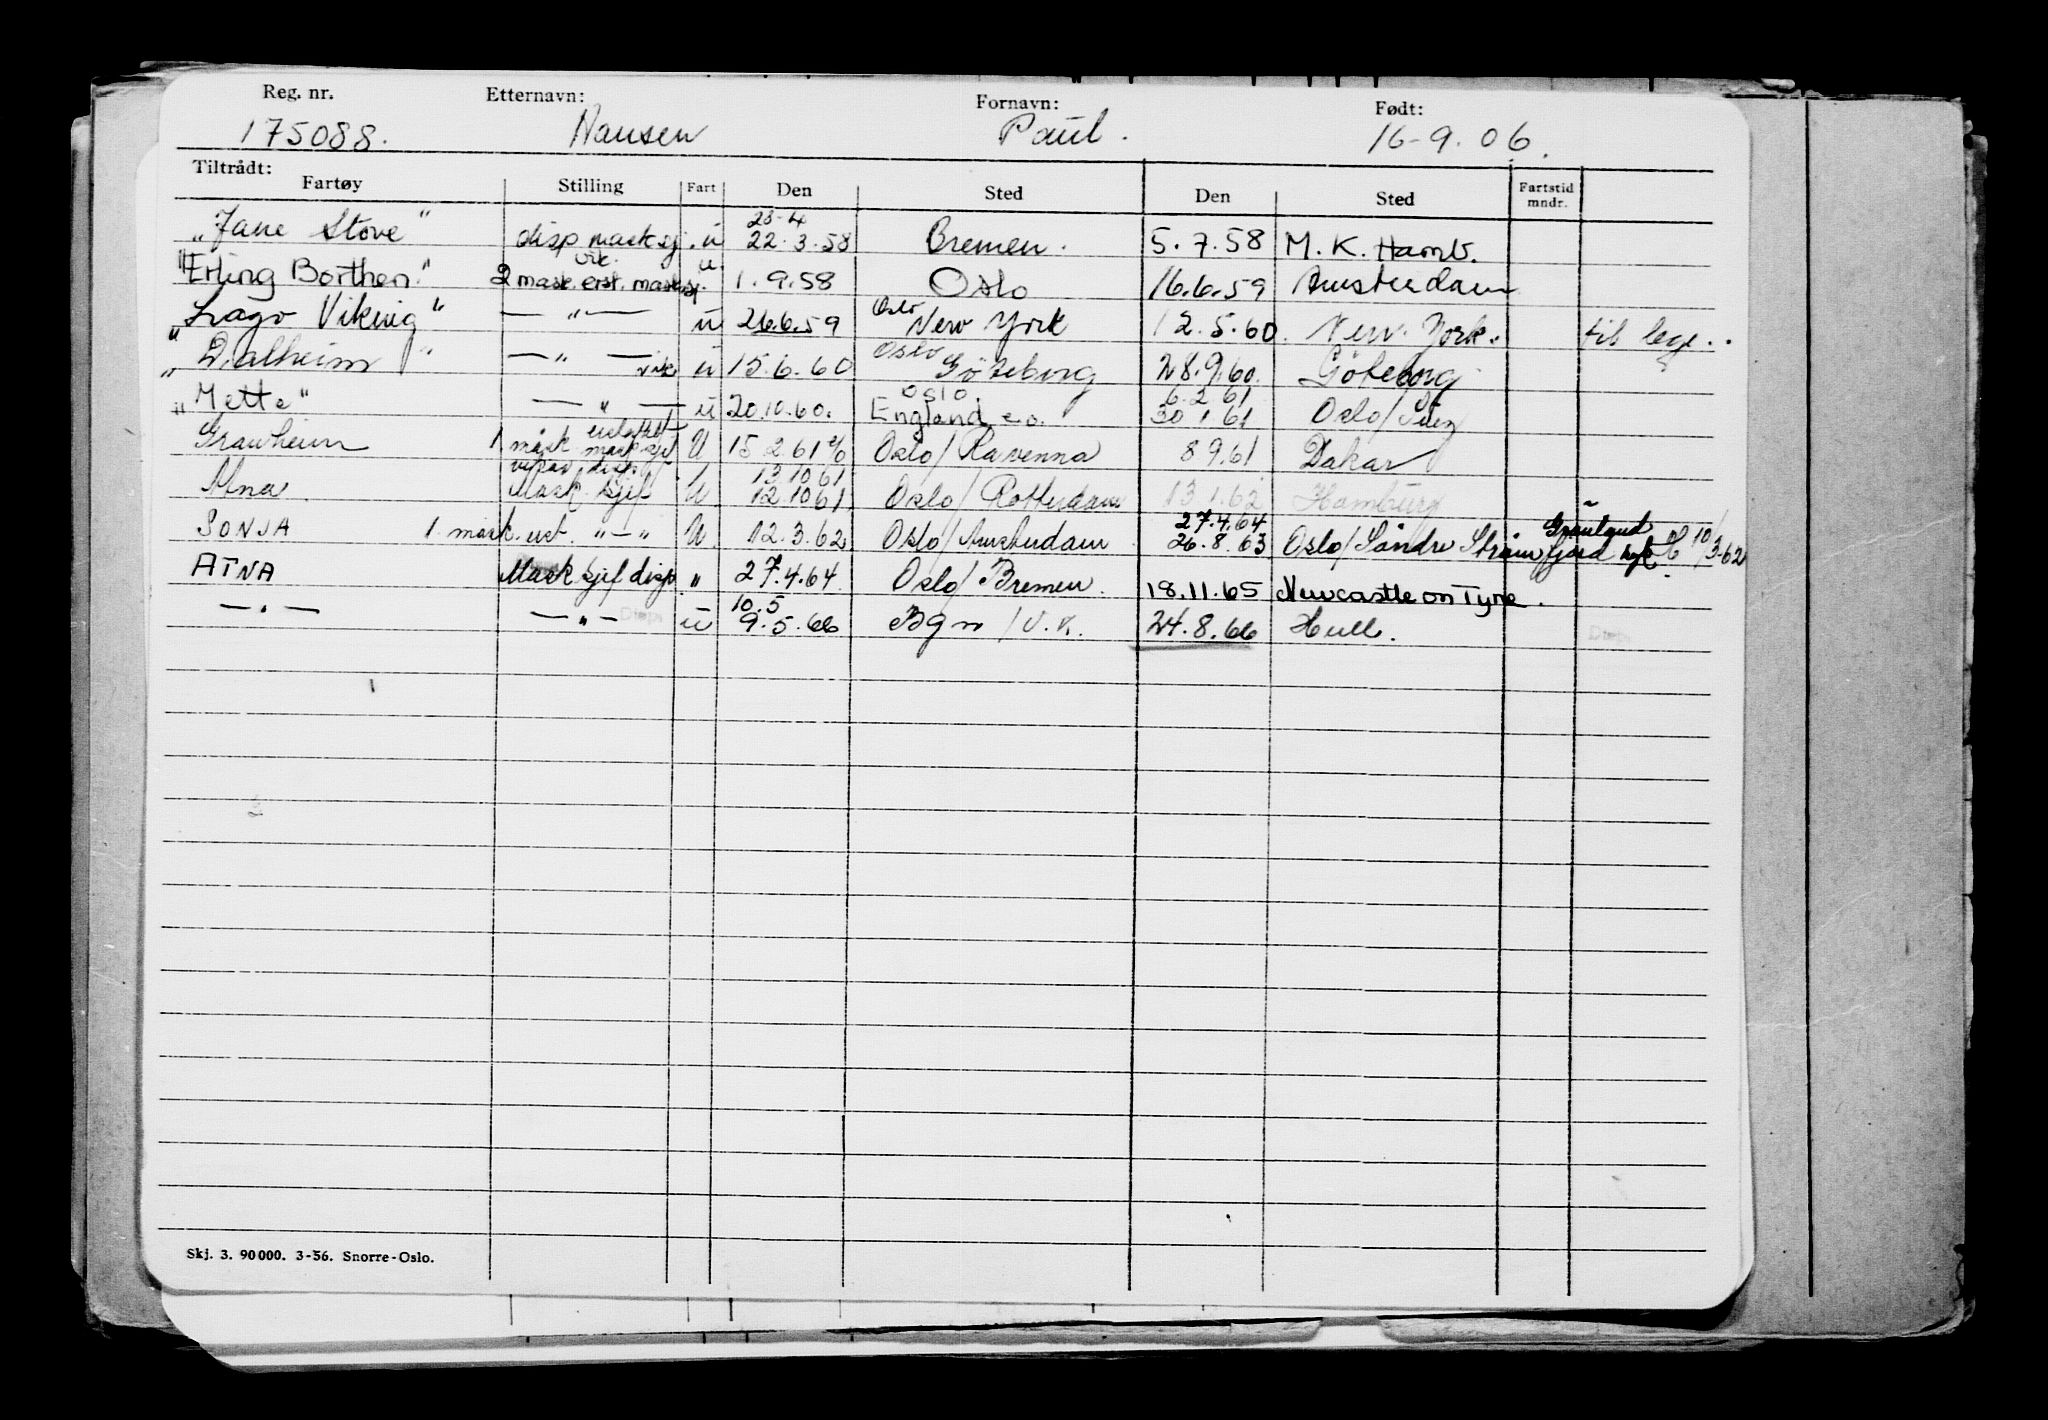 Reg. nr. Etternavn: Fornavn: Født:
175088. Hansen Paul. 16-9.06.
Tiltrådt:
Fartøy Stilling Fart Den Sted Den Sted Fartstid mndr.
23-4
"Jane Stove" disp mask sj. u 22.3.58 Bremen. 5.7.58 M.K. Hamb.
vik.
"Erling Borthen." 2 mask. erst. masksj. u. 1.9.58 Oslo 16.6.59 Amsterdam
"Lago Viking" — " — u 26.6.59 Oslo New York 12.5.60 New York. til lege..
"Dalheim" — " — vik u 15.6.60 Oslo Göteborg 28.9.60 Göteborg
oslo. 6.2.61
"Mette" — " — u 20.10.60. England e.o. 30.1.61 Oslo/Suez
Grauheim 1 mask mask sjef U 15.2.61 Oslo/Ravenna 8 9.61 Dakar
disp. 13.10.61
Atna Mask. sjef U 12.10.61 Oslo/Rotterdam 13.1.62 Hamburg
27.4.64 Grønland
SONJA 1. mask. ust. "—" U 12.3.62 Oslo/Amsterdam 26.8.63 Oslo/Söndre Strömfjord 10/3-62
ATNA Mask sjef disp " 27.4.64 Oslo/Bremen. 18.11.65 Newcastle on Tyne.
10.5
— " — — " — Disp. u 9.5.66 Bgn/V.K. 24.8.66 Hull.
Skj. 3. 90000. 3-56. Snorre-Oslo.